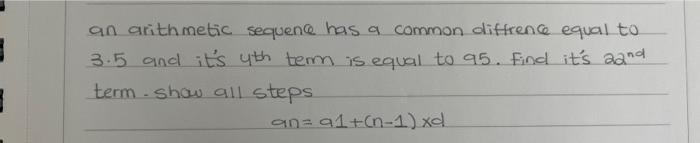 an arithmetic sequence has a common diffrence equal to
3.5 and it's 4th term is equal to 95. Find it's 22nd
term. show all steps
an = a1+(n-1)xd